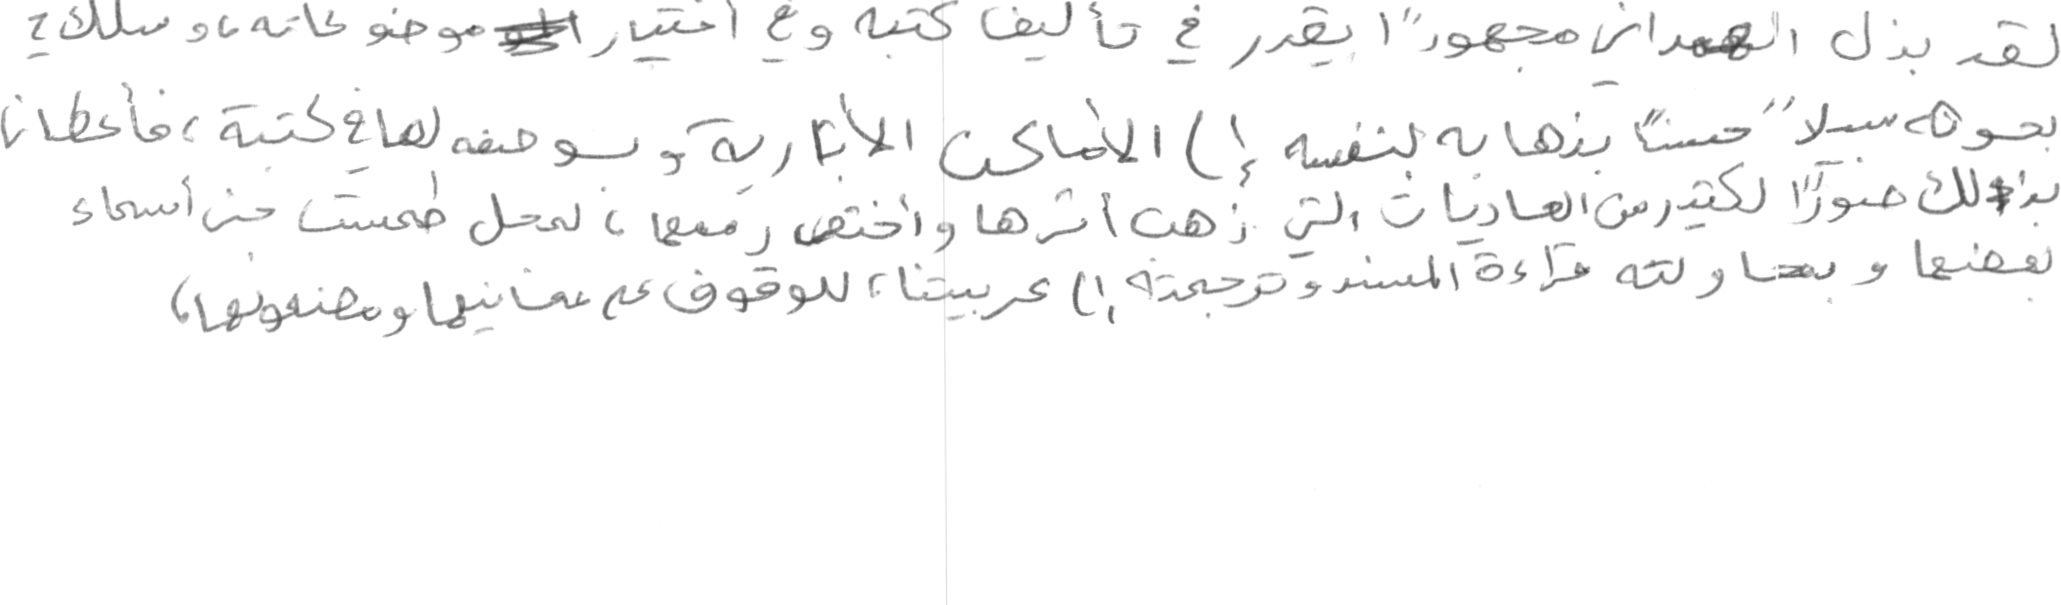 لقد بذل الهمداني مجهودًا يقدر في تأليف كتبه وفي اختيار موضوعاته، وسلك في
بحوثه سبيلًا حسنًا بذهابه بنفسه إلى الأماكن الأثارية وبوصفه لها في كتبه، فأعطانا
بذلك صورًا لكثير من العاديات التي ذهب أثرها واختفى رسمها، لمحل طمست حتى أسماء
بعضها وبمحاولته قراءة المسند وترجمته إلى عربيتنا، للوقوف على معانيها ومضمونها،